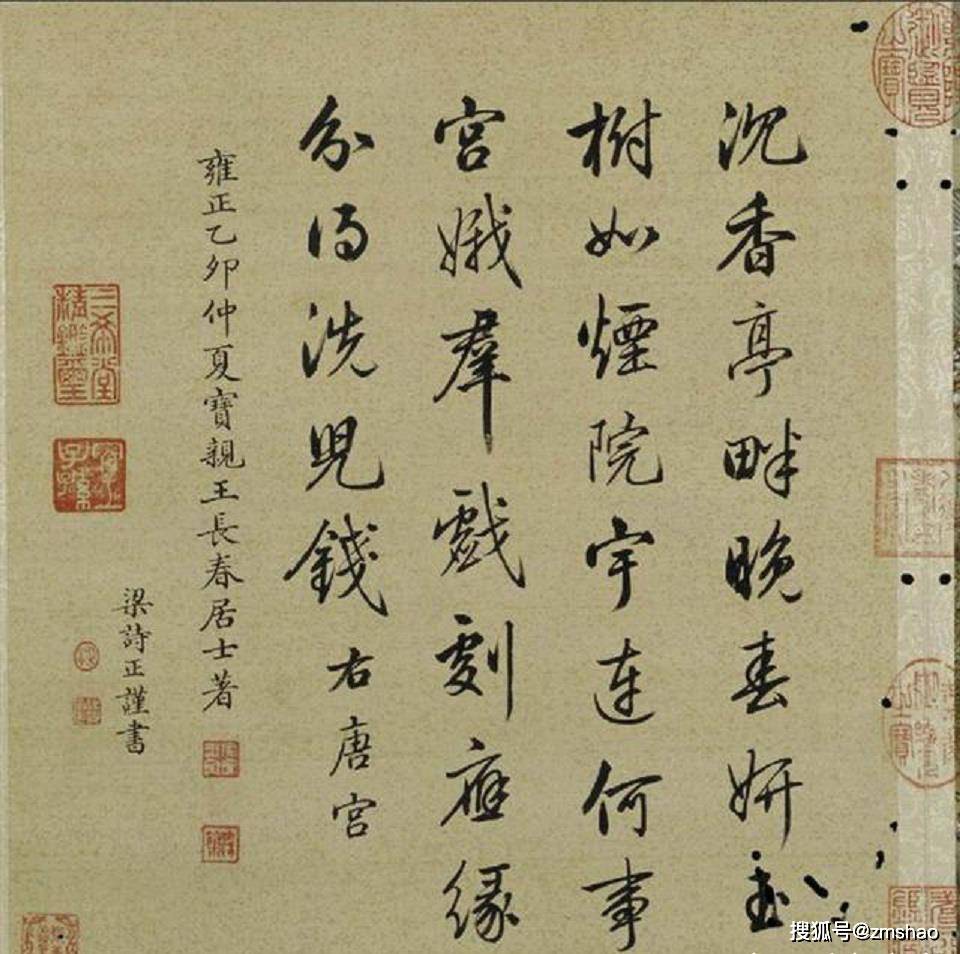 沉香亭畔晚春妍
樹如煙院宇連何事
宮娥羣戲劇應緣
分得洗兒錢右唐宮
雍正乙卯仲夏寶親王長春居士著
梁詩正謹書
三希堂
精鑑璽
宜
子孫
搜狐号@zmshao